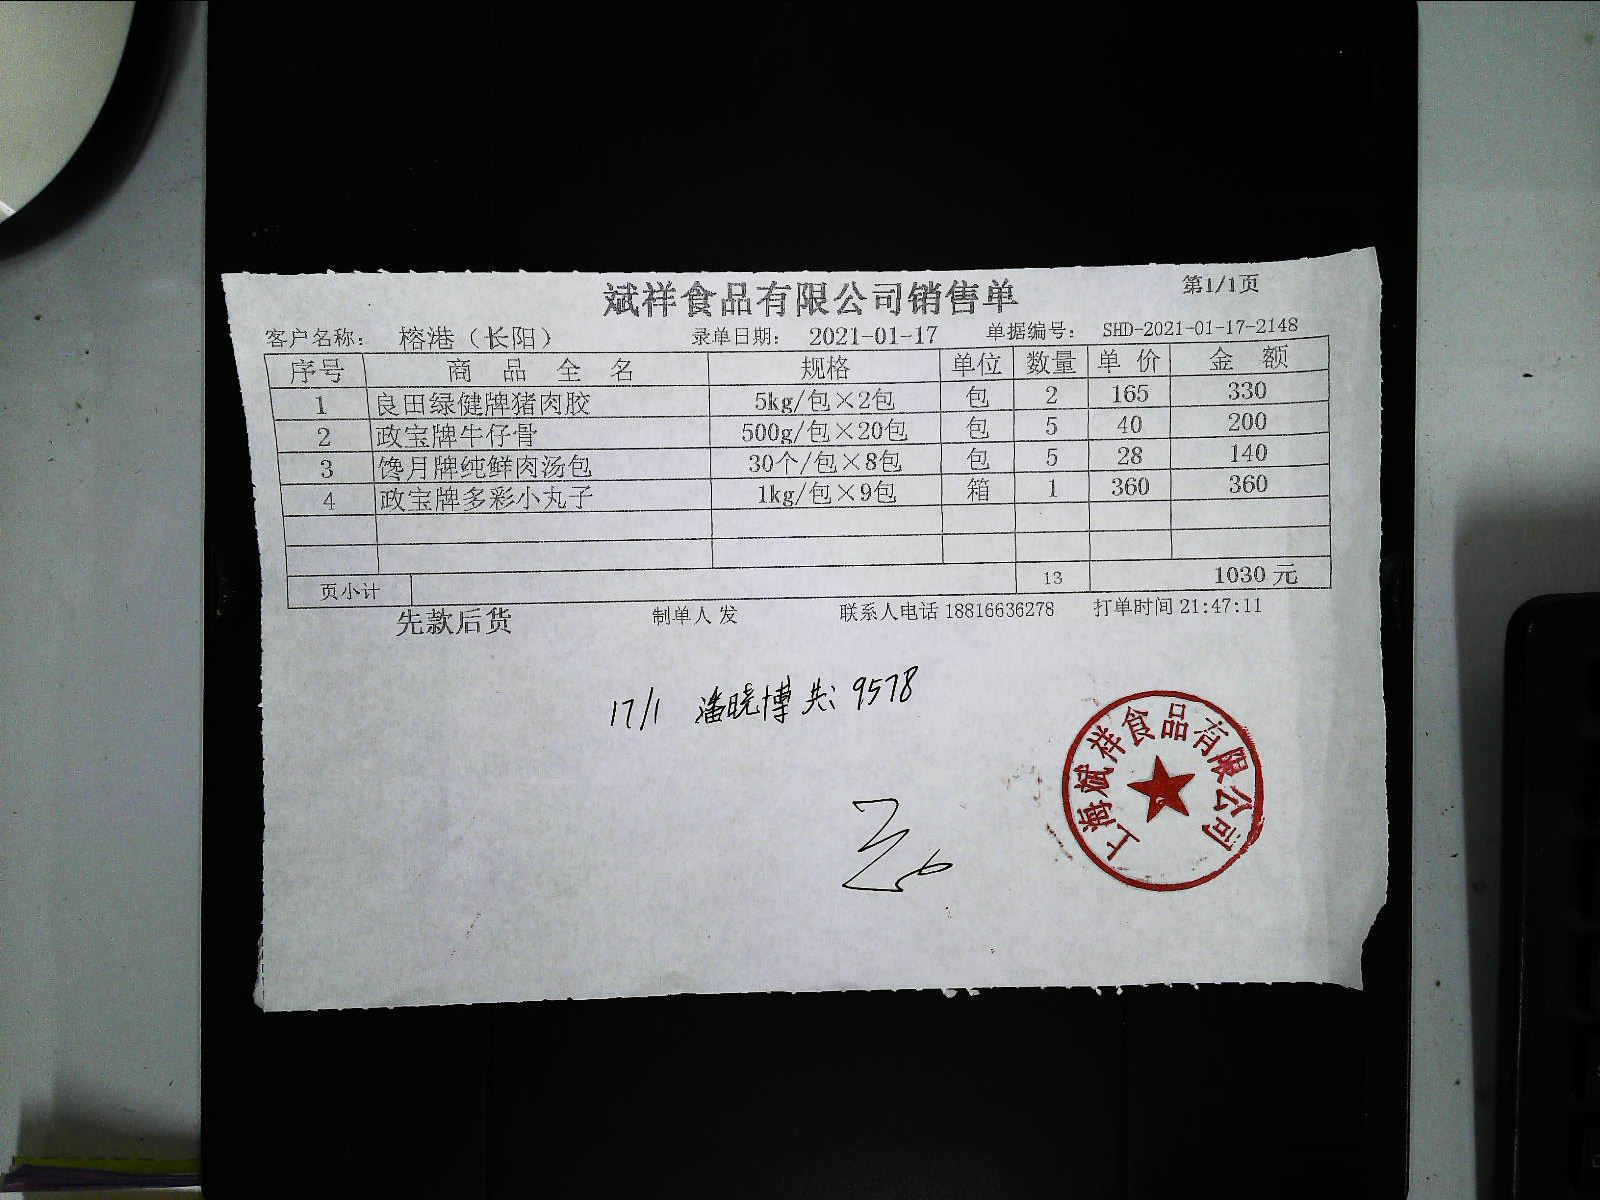 斌祥食品有限公司销售单 第1/1页
客户名称: 榕港（长阳） 录单日期: 2021-01-17 单据编号: SHD-2021-01-17-2148
序号 商品全名 规格 单位 数量 单价 金额
1 良田绿健牌猪肉胶 5kg/包×2包 包 2 165 330
2 政宝牌牛仔骨 500g/包×20包 包 5 40 200
3 馋月牌纯鲜肉汤包 30个/包×8包 包 5 28 140
4 政宝牌多彩小丸子 1kg/包×9包 箱 1 360 360
页小计 13 1030元
先款后货 制单人 发 联系人电话 18816636278 打单时间 21:47:11
17/1 潘晓博 共: 9578
上海斌祥食品有限公司